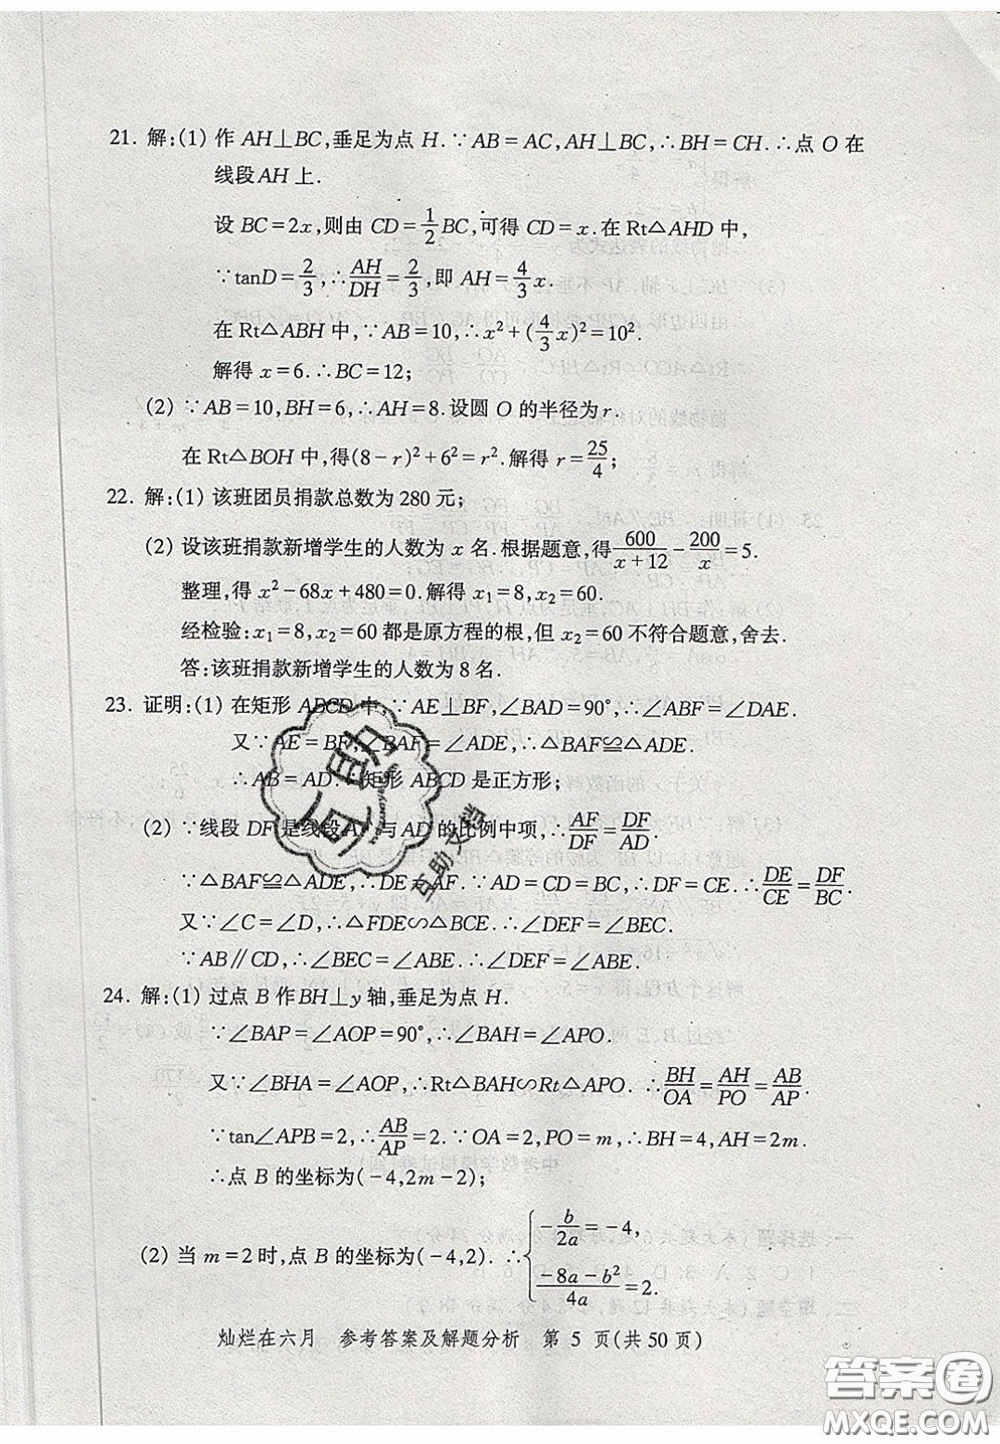 21. 解:(1) 作 AH⊥BC,垂足为点 H.∵AB=AC,AH⊥BC,∴BH=CH.∴点 O 在
线段AH 上.
设 BC=2x,则由 CD=1/2BC,可得 CD=x.在 Rt△AHD 中,
∵tanD=2/3,∴AH/DH=2/3,即 AH=4/3x.
在 Rt△ABH 中,∵AB=10,∴x²+(4/3x)²=10².
解得 x=6.∴BC=12;
(2) ∵AB=10,BH=6,∴AH=8.设圆 O 的半径为 r.
在 Rt△BOH 中,得(8-r)²+6²=r².解得 r=25/4;
22. 解:(1) 该班团员捐款总数为 280 元;
(2) 设该班捐款新增学生的人数为 x 名.根据题意,得600/(x+12)-200/x=5.
整理,得 x²-68x+480=0.解得 x₁=8,x₂=60.
经检验:x₁=8,x₂=60 都是原方程的根,但 x₂=60 不符合题意,舍去.
答:该班捐款新增学生的人数为 8 名.
23. 证明:(1) 在矩形 ABCD 中,∵AE⊥BF,∠BAD=90°,∴∠ABF=∠DAE.
又∵AE=BF,∠BAF=∠ADE,∴△BAF≌△ADE.
∴AB=AD.∴矩形 ABCD 是正方形;
(2) ∵线段 DF 是线段AF 与 AD 的比例中项,∴AF/DF=DF/AD.
∵△BAF≌△ADE,∴DE=AF.∵AD=CD=BC,∴DF=CE.∴DE/CE=DF/BC.
又∵∠C=∠D,∴△FDE∽△BCE.∴∠DEF=∠BEC.
∵AB∥CD,∴∠BEC=∠ABE.∴∠DEF=∠ABE.
24. 解:(1) 过点 B 作BH⊥y 轴,垂足为点 H.
∵∠BAP=∠AOP=90°,∴∠BAH=∠APO.
又∵∠BHA=∠AOP,∴Rt△BAH∽Rt△APO. ∴BH/OA=AH/PO=AB/AP.
∵tan∠APB=2,∴AB/AP=2.∵OA=2,PO=m,∴BH=4,AH=2m.
∴点 B 的坐标为(-4,2m-2);
(2) 当 m=2时,点 B 的坐标为(-4,2). ∴{-b/2a=-4, (-8a-b²)/4a=2.
灿烂在六月 参考答案及解题分析 第 5 页(共 50 页)
互助文档
答案圈
MXQE.COM